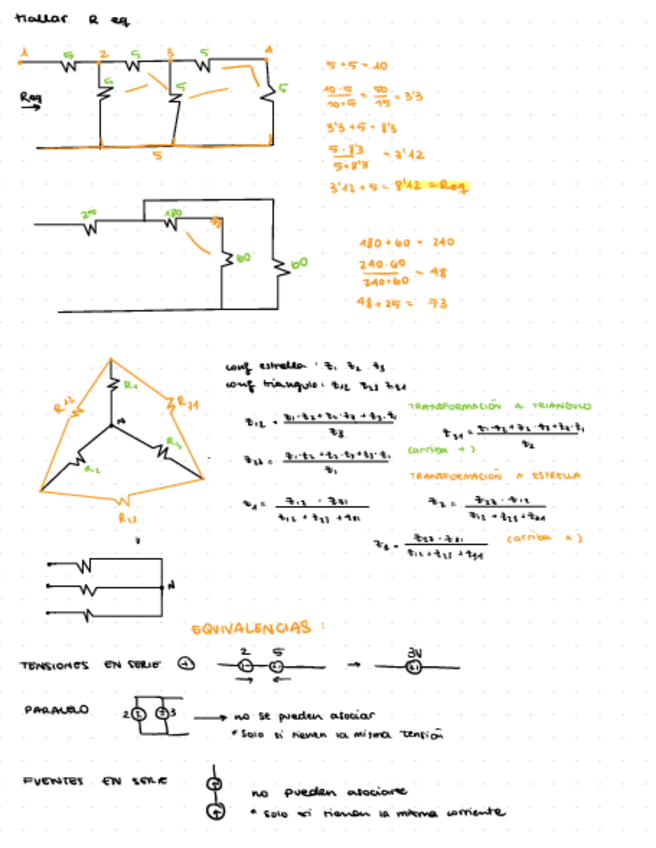 Hallar R eq
1 5 2 5 3 5 4
5 5 5
Req
5
5 + 5 = 10
10·5 / 10+5 = 50 / 15 = 3'3
3'3 + 5 = 8'3
5·8'3 / 5+8'3 = 3'12
3'12 + 5 = 8'12 = Req
25 180
60 60
180 + 60 = 240
240·60 / 240+60 = 48
48 + 25 = 73
R1
R12 R31
N
R2
R23
conf estrella : z1 z2 z3
conf triangulo : z12 z23 z31
TRANSFORMACIÓN A TRIANGULO
z12 = z1·z2 + z2·z3 + z3·z1 / z3
z31 = z1·z2 + z2·z3 + z3·z1 / z2
z23 = z1·z2 + z2·z3 + z3·z1 / z1
(arriba +)
TRANSFORMACIÓN A ESTRELLA
z1 = z12 · z31 / z12 + z23 + z31
z2 = z23 · z12 / z12 + z23 + z31
z3 = z23 · z31 / z12 + z23 + z31
(arriba ×)
N
EQUIVALENCIAS :
TENSIONES EN SERIE + 2 5 → 3V
PARALELO 2 3 → no se pueden asociar
* Solo si tienen la misma tensión
FUENTES EN SERIE
no pueden asociarse
* solo si tienen la misma corriente